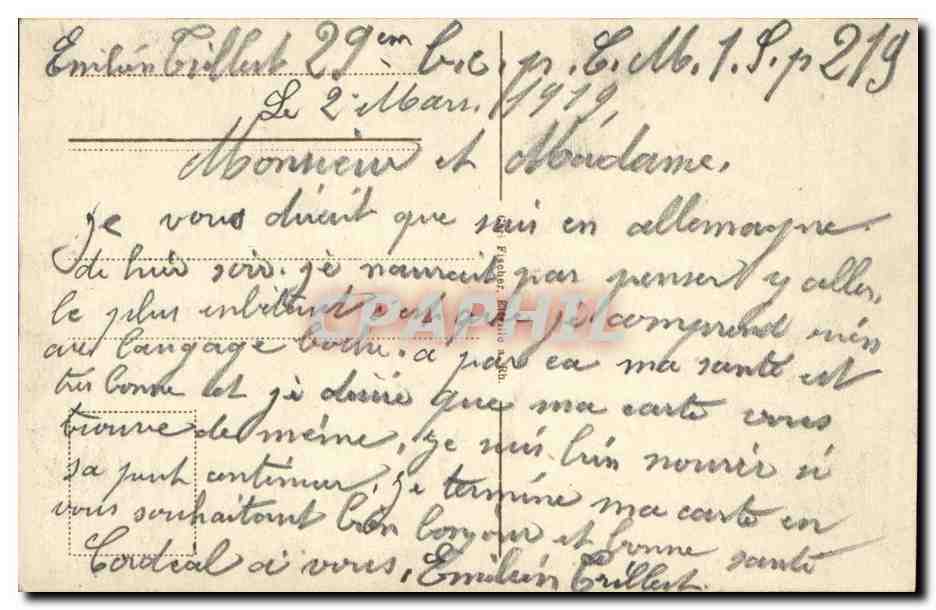 Emilién Trillert 29em b.c.p. C.M.1. S.p 219
Le 2 Mars. 1919.
Monsieur et Madame.
je vous dirait que suis en allemagne.
de hier soir. je naurait pas penser y aller.
le plus enbêtant c'est que je comprend rien
au langage boche. a par ca ma santé est
très bonne et je désire que ma carte vous
trouve de même, je suis bien nourir si
sa peut continuer, je termine ma carte en
vous souhaitant bien bonjour et bonne santé
Cordial a vous, Emilién Trillert.
Fischer,
CPAPHIL